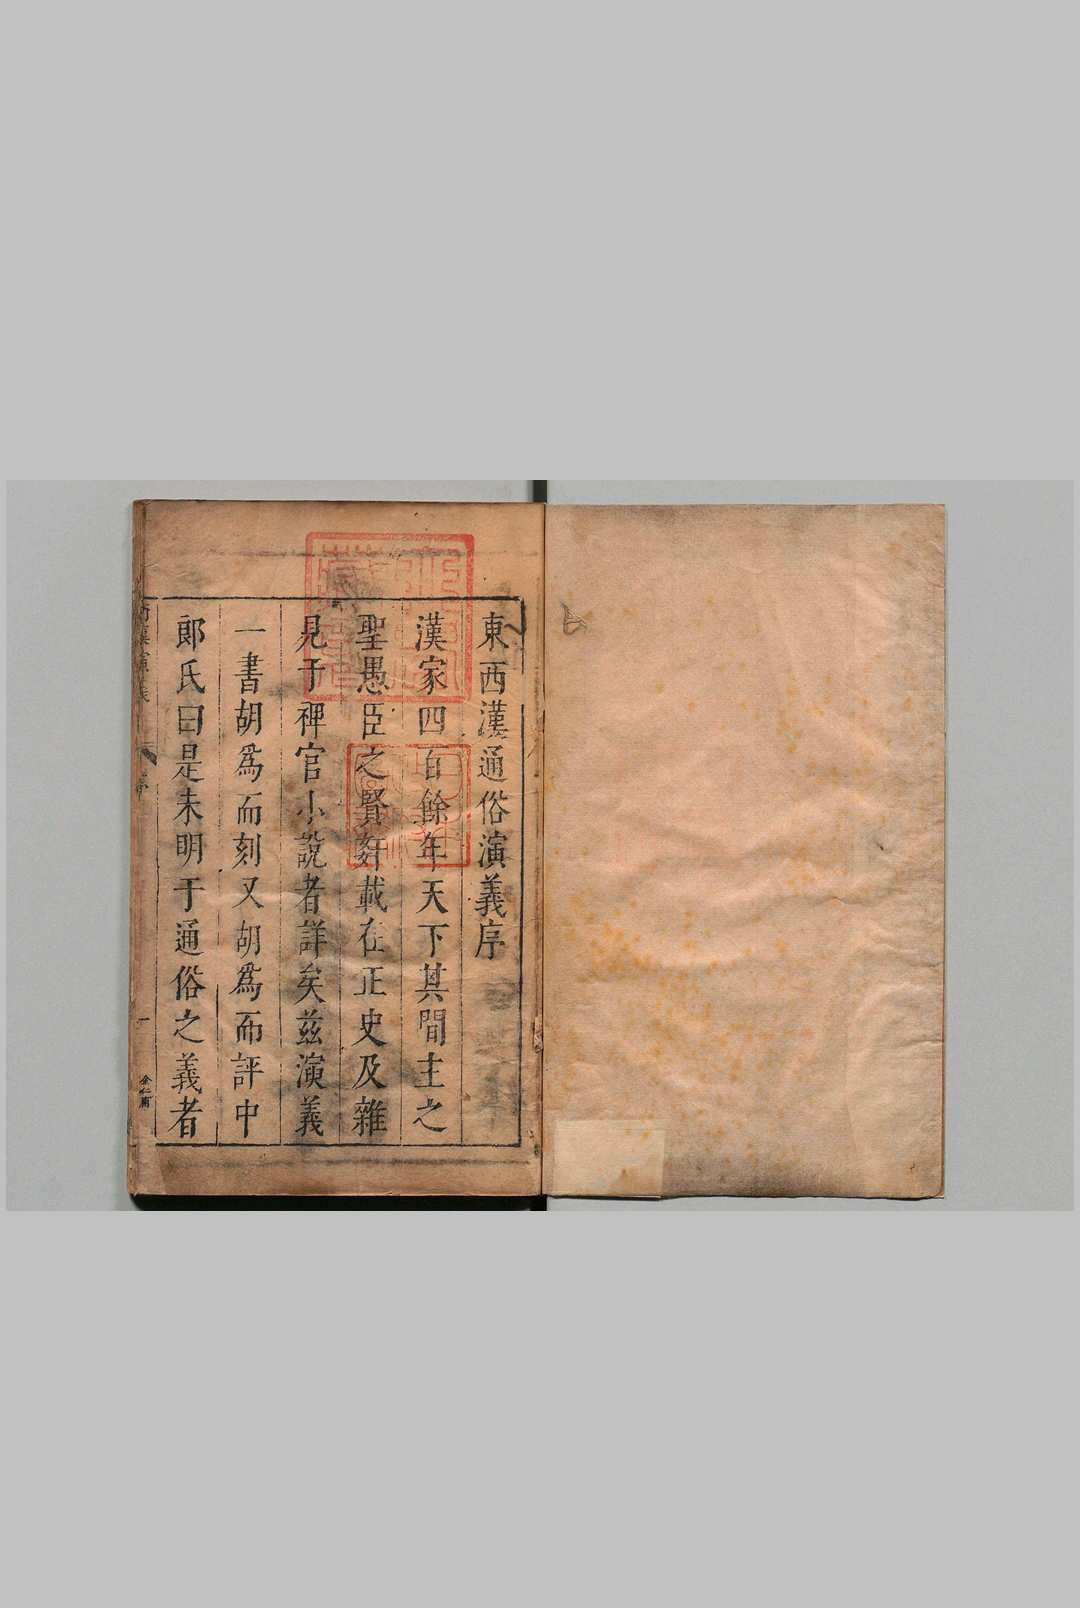 東西漢通俗演義序
漢家四百餘年天下其間主之
聖愚臣之賢奸載在正史及雜
見于稗官小說者詳矣茲演義
一書胡爲而刻又胡爲而評中
郎氏曰是未明于通俗之義者
序
一
余仁甫